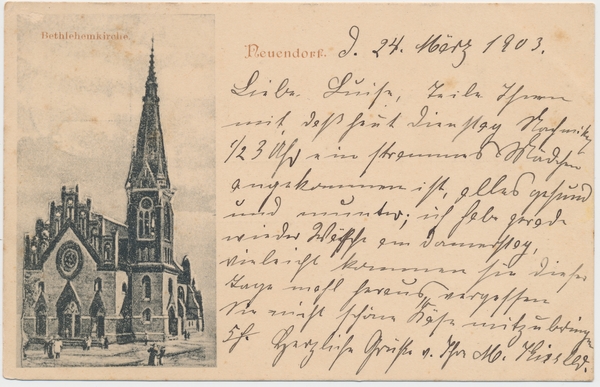 Bethlehemkirche.
Neuendorf. d. 24. März 1903.
Liebe Luise, Teile Ihnen
mit, daß heut Dienstag Nachmittag
1/2 3 Uhr ein strammes Mädchen
angekommen ist, alles gesund
und munter; ich habe gerade
wieder Wäsche am Donnerstag,
vieleicht kommen sie diese
Tage mohl heraus, vergessen
Sie nicht schöne Käse mitzubringen
Herzliche Grüße v. Ihr M.